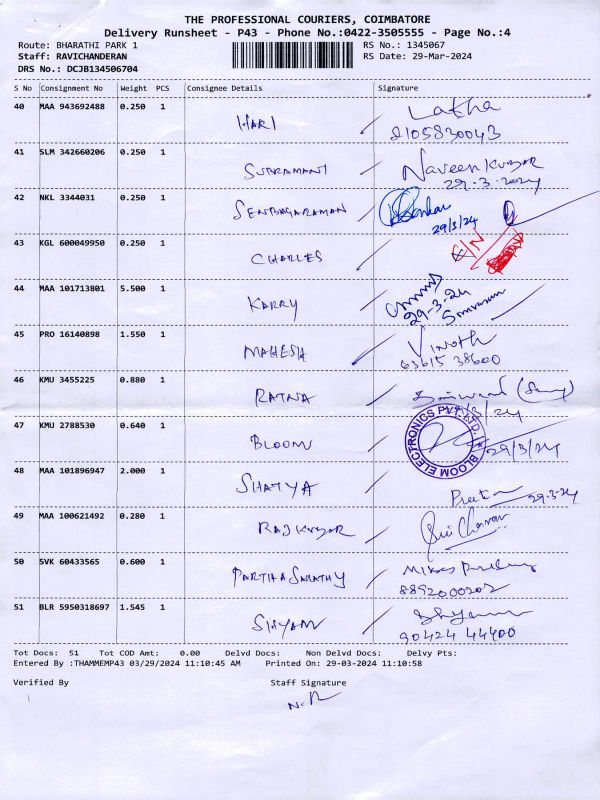 THE PROFESSIONAL COURIERS, COIMBATORE
Delivery Runsheet - P43 - Phone No.:0422-3505555 - Page No.:4
Route: BHARATHI PARK 1 RS No.: 1345067
Staff: RAVICHANDERAN RS Date: 29-Mar-2024
DRS No.: DCJB134506704
S No Consignment No Weight PCS Consignee Details Signature
40 MAA 943692488 0.250 1 HARI Latha
8105830043
41 SLM 342660206 0.250 1 SUBRAMANI Naveen Kumar
29-3-2024
42 NKL 3344031 0.250 1 SENBAGARAMAN
29/3/24
43 KGL 600049950 0.250 1 CHARLES
44 MAA 101713801 5.500 1 KARRY
29-3-24
Srinivasan
45 PRO 16140898 1.550 1 MAHESH Vinoth
63615 38600
46 KMU 3455225 0.880 1 RATNA
47 KMU 2788530 0.640 1 BLOOM 29/3/24
BLOOM ELECTRONICS PVT. LTD.
48 MAA 101896947 2.000 1 SHATYA 29-3-24
49 MAA 100621492 0.280 1 RAJKUMAR Sri Charan
50 SVK 60433565 0.600 1 PARTHASARATHY
8892000202
51 BLR 5950318697 1.545 1 SHYAM Shyam
90424 44400
Tot Docs: 51 Tot COD Amt: 0.00 Delvd Docs: Non Delvd Docs: Delvy Pts:
Entered By :THAMMEMP43 03/29/2024 11:10:45 AM Printed On: 29-03-2024 11:10:58
Verified By Staff Signature
N.R